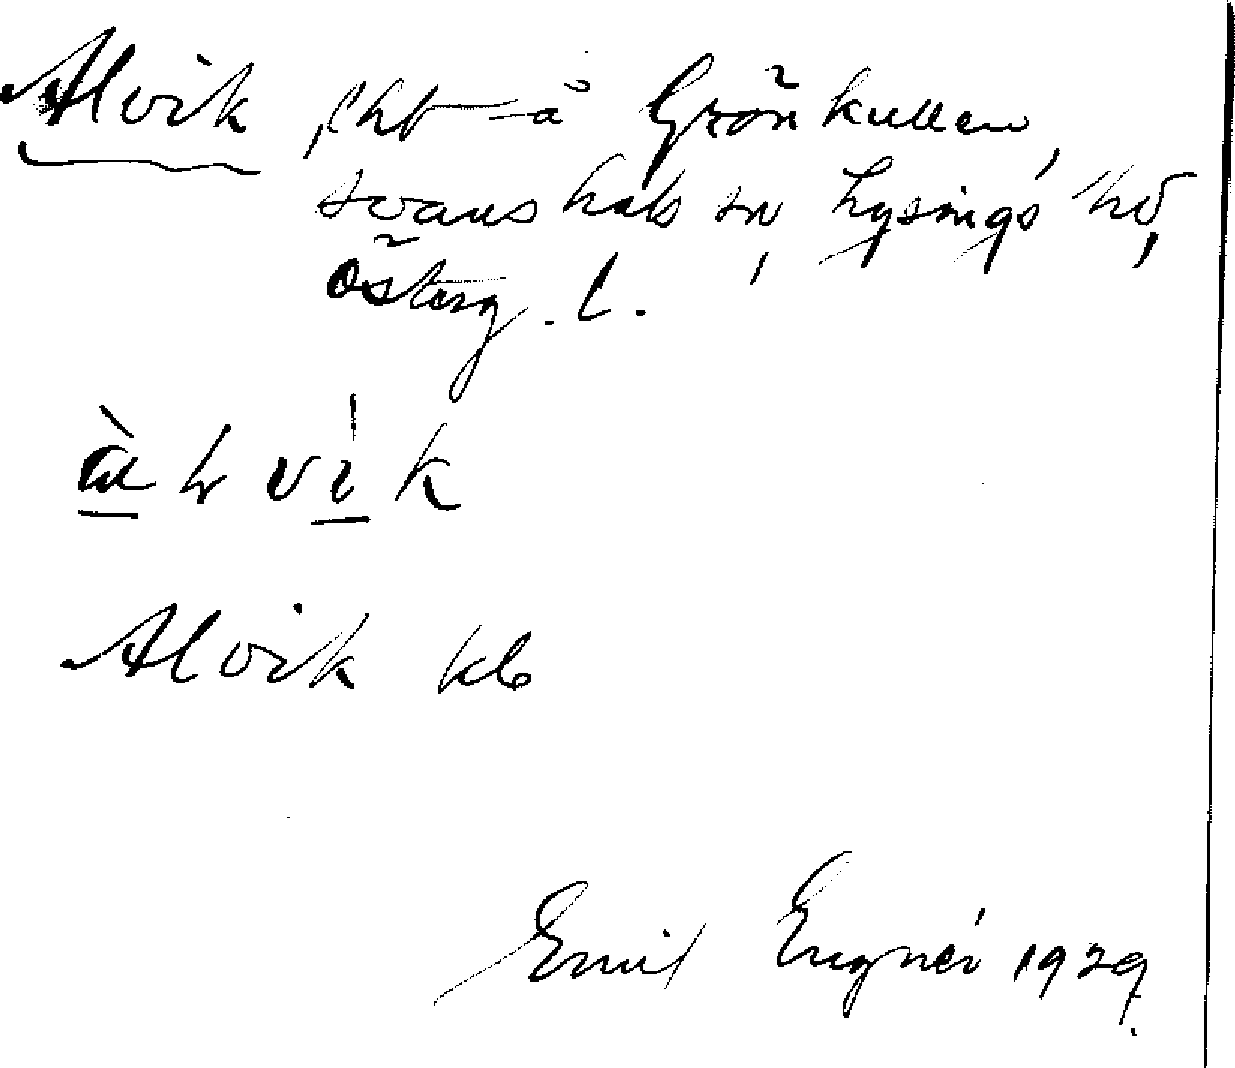 Alvik, lht å Grönkullen,
Svanshals sn, Lysings hd,
Österg. l.
àlvik
Alvik kb
Emil Engnér 1929.